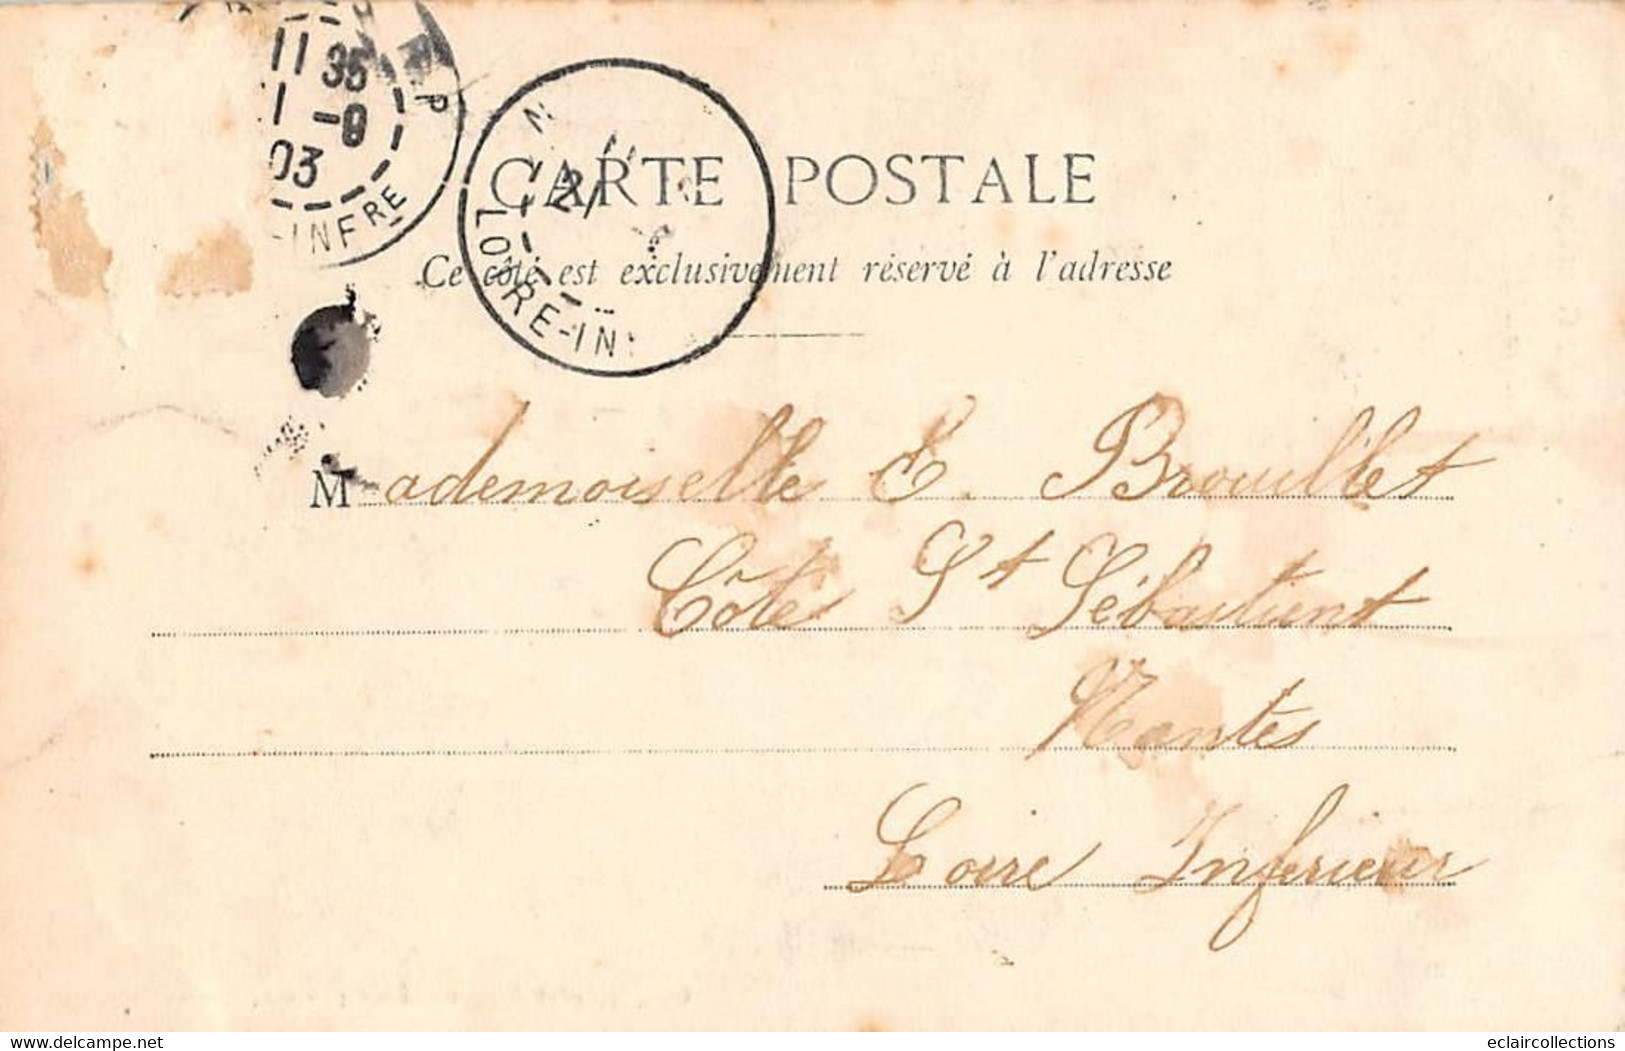 11 35
1 -9
03
-INFRE
P
N
LOIRE-INF
CARTE POSTALE
Ce côté est exclusivement réservé à l'adresse
Mademoiselle E. Brouillet
Côte St Sébastient
Nantes
Loire Inferieur
www.delcampe.net
eclaircollections